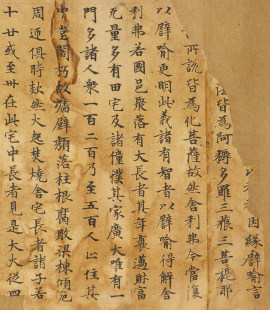 因緣譬喻言
皆為阿耨多羅三藐三菩提耶
所說皆為化菩薩故然舍利弗今當復
以譬喻更明此義諸有智者以譬喻得解舍
利弗若國邑聚落有大長者其年衰邁財富
无量多有田宅及諸僮僕其家廣大唯有一
門多諸人衆一百二百乃至五百人止住其
中堂閣朽故牆壁頹落柱根腐敗梁棟傾危
周迊俱時欻然火起焚燒舍宅長者諸子若
十廿或至卅在此宅中長者見是大火從四